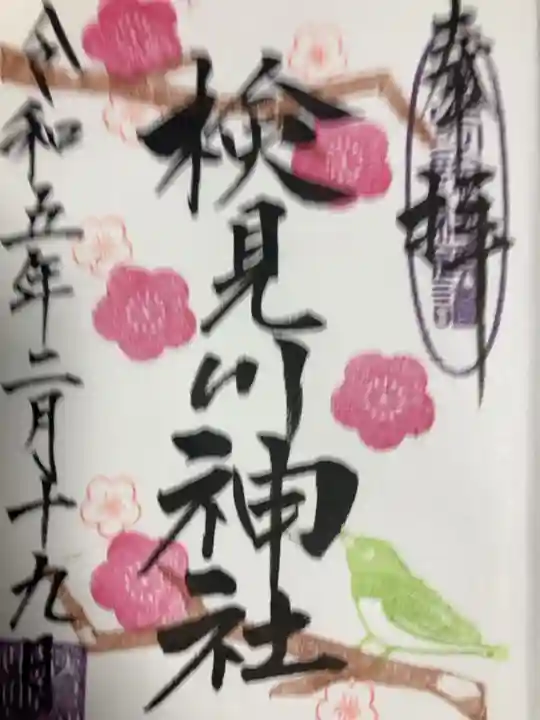 奉拝
検見川神社
令和五年二月十九日